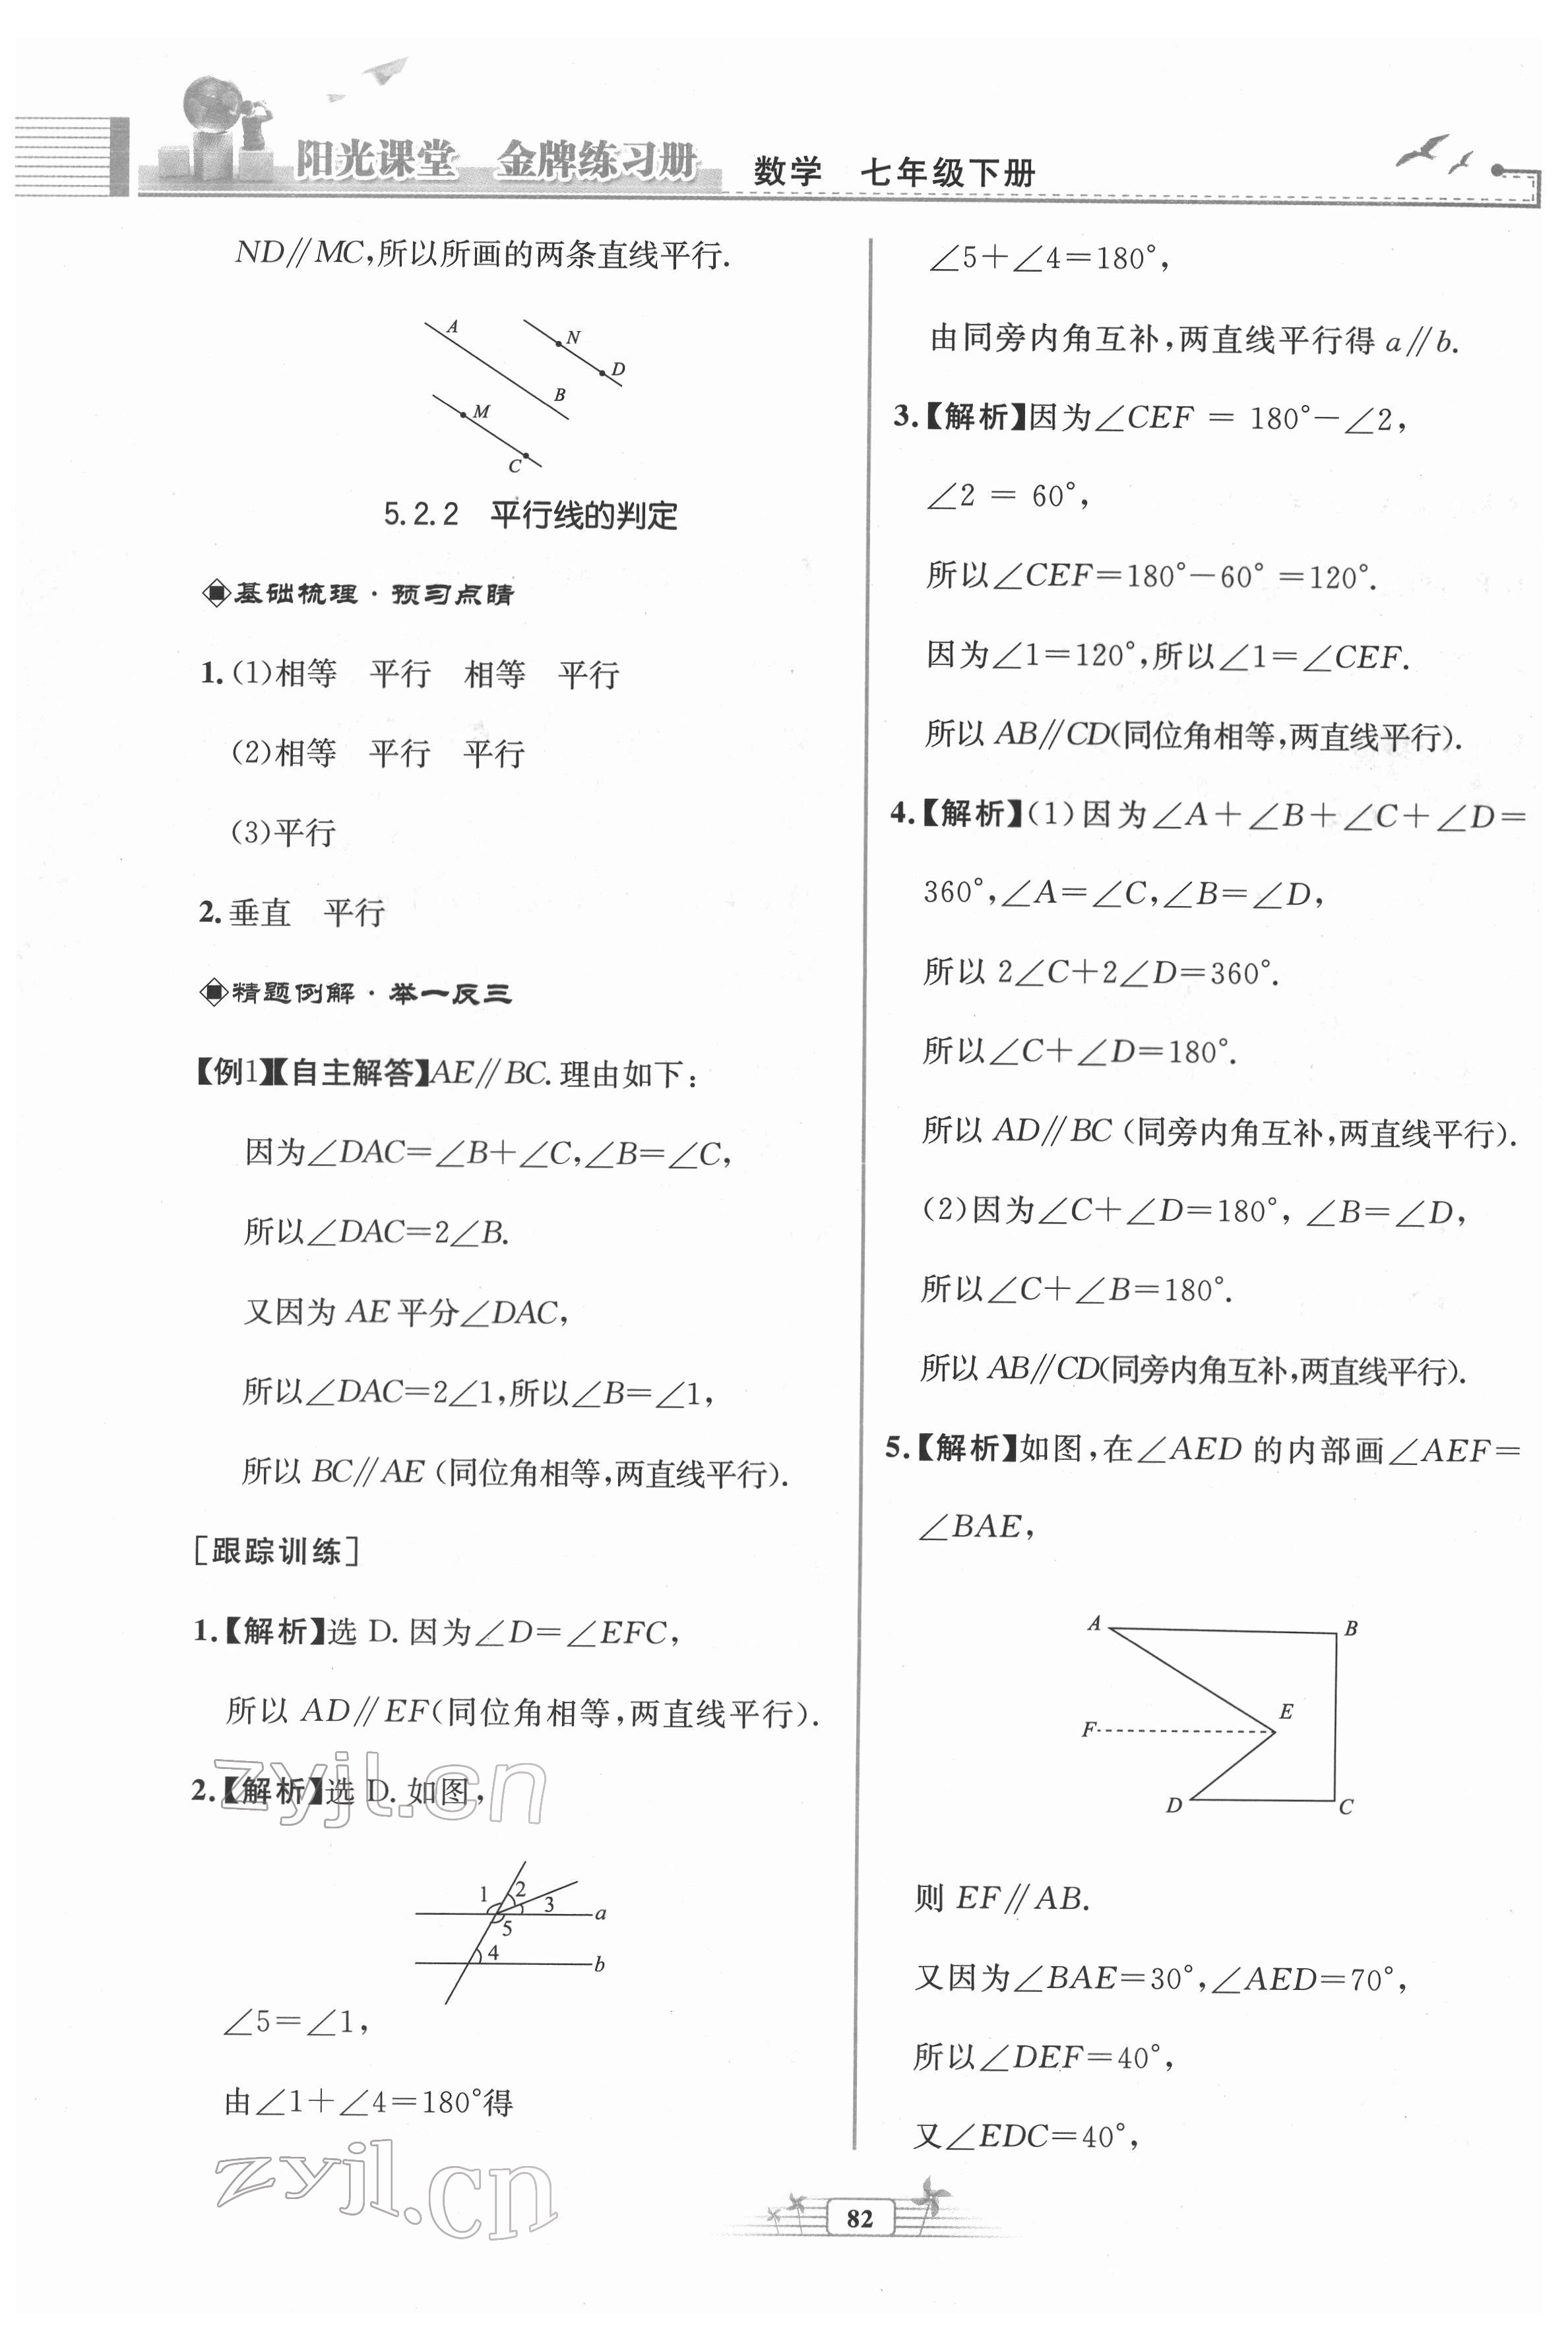 阳光课堂 金牌练习册 数学 七年级下册
ND∥MC,所以所画的两条直线平行.
A
N
D
B
M
C
5.2.2 平行线的判定
基础梳理·预习点睛
1.(1)相等 平行 相等 平行
(2)相等 平行 平行
(3)平行
2.垂直 平行
精题例解·举一反三
【例1】【自主解答】AE∥BC.理由如下:
因为∠DAC=∠B+∠C,∠B=∠C,
所以∠DAC=2∠B.
又因为AE平分∠DAC,
所以∠DAC=2∠1,所以∠B=∠1,
所以BC∥AE(同位角相等,两直线平行).
[跟踪训练]
1.【解析】选D.因为∠D=∠EFC,
所以AD∥EF(同位角相等,两直线平行).
2.【解析】选D.如图,
zyjl.cn
1
2
3
a
5
4
b
∠5=∠1,
由∠1+∠4=180°得
zyjl.cn
∠5+∠4=180°,
由同旁内角互补,两直线平行得a∥b.
3.【解析】因为∠CEF = 180°-∠2,
∠2 = 60°,
所以∠CEF=180°-60°=120°.
因为∠1=120°,所以∠1=∠CEF.
所以AB∥CD(同位角相等,两直线平行).
4.【解析】(1)因为∠A+∠B+∠C+∠D=
360°,∠A=∠C,∠B=∠D,
所以2∠C+2∠D=360°.
所以∠C+∠D=180°.
所以AD∥BC(同旁内角互补,两直线平行).
(2)因为∠C+∠D=180°,∠B=∠D,
所以∠C+∠B=180°.
所以AB∥CD(同旁内角互补,两直线平行).
5.【解析】如图,在∠AED的内部画∠AEF=
∠BAE,
A
B
E
F
D
C
则EF∥AB.
又因为∠BAE=30°,∠AED=70°,
所以∠DEF=40°,
又∠EDC=40°,
82